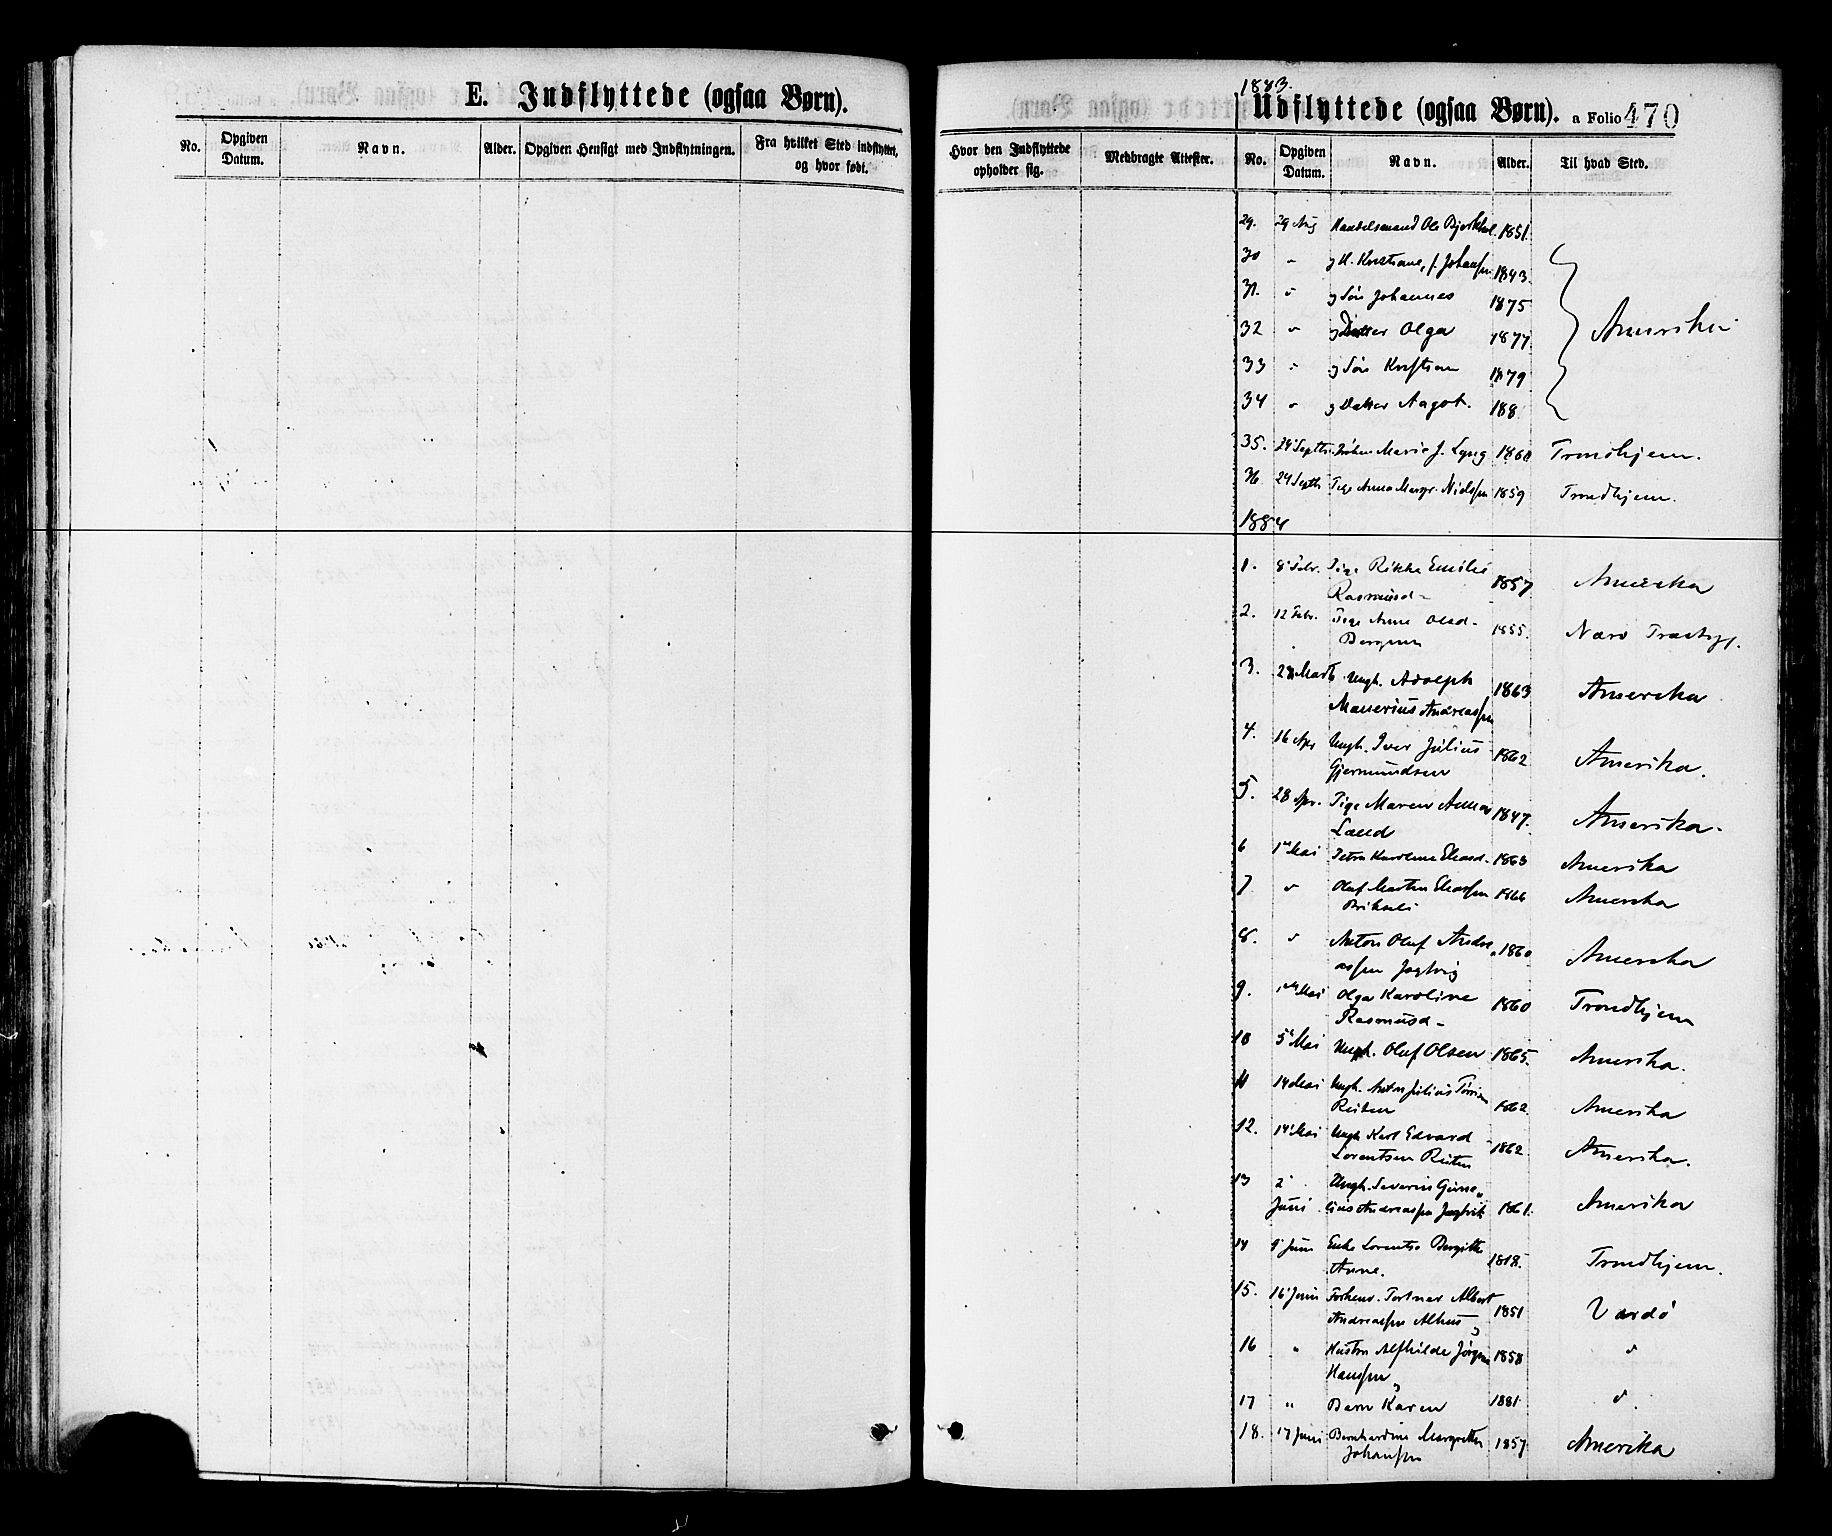 E. Indflyttede (ogsaa Børn).
No. Opgiven Datum. Navn. Alder. Opgiven Hensigt med Indflytningen. Fra hvilket Sted indflyttet, og hvor født.
1883.
Udflyttede (ogsaa Børn). a Folio 470
Hvor den Indflyttede opholder sig. Medbragte Attester. No. Opgiven Datum. Navn. Alder. Til hvad Sted.
29. 29 Aug Handelsmand Ole 1851.
30 " og H. Kristiane, f. Johansen 1843.
31. " og Søn Johannes 1875
32 " og Datter Olga 1877 Amerika
33 " og Søn Kristian 1879
34 " og Datter Aagot. 188
35. 24 Septbr. Marie J. Lyng 1860 Trondhjem.
36 24 Septbr Pige Anna Margr. Nielsen 1859 Trondhjem.
1884
1. 8 Febr. Pige Rikka Emilie
Rasmusd- 1857 Amerika
2. 12 Febr. Pige Anne Olsd-
Bergmen 1855. Nærø
3. Marts Ungk. Adolph
Andreassen 1863 Amerika
4. 16 Apr Ungk. Iver Julius
Gjermundsen 1862 Amerika.
5. 28 Apr. Pige Maren Anna
Lund 1847. Amerika.
6 1 Mai Petra Karoline Eliasd. 1863 Amerika
7. " Oluf Martin Eliassen
1866 Amerika
8. " Anton Oluf Andre
assen Jægtvig 1860 Amerika
9. 1 Mai Olga Karoline
Rasmusd- 1860 Trondhjem
10 5 Mai Ungk. Oluf Olsen 1865. Amerika.
11 14 Mai Ungk. Anton Julius
1862. Amerika
12. 14 Mai Ungk Karl Edvard
Lorentsen 1862. Amerika.
13 2 Ungk. Severin
Juni Andreassen Jægtvik 1861. Amerika
14 9 Juni Enke Lorentse Bergitte
Anne. 1818. Trondhjem.
15. 16 Juni Forhenv. Portner Albert
Andreassen 1851 Vardø
16 " Hustru Alfhilde Jørgine
Hanssen 1858 "
17 " Barn Karen 1881 ".
18. 17 Juni Bernhardine Margrethe
Johansen 1857 Amerika